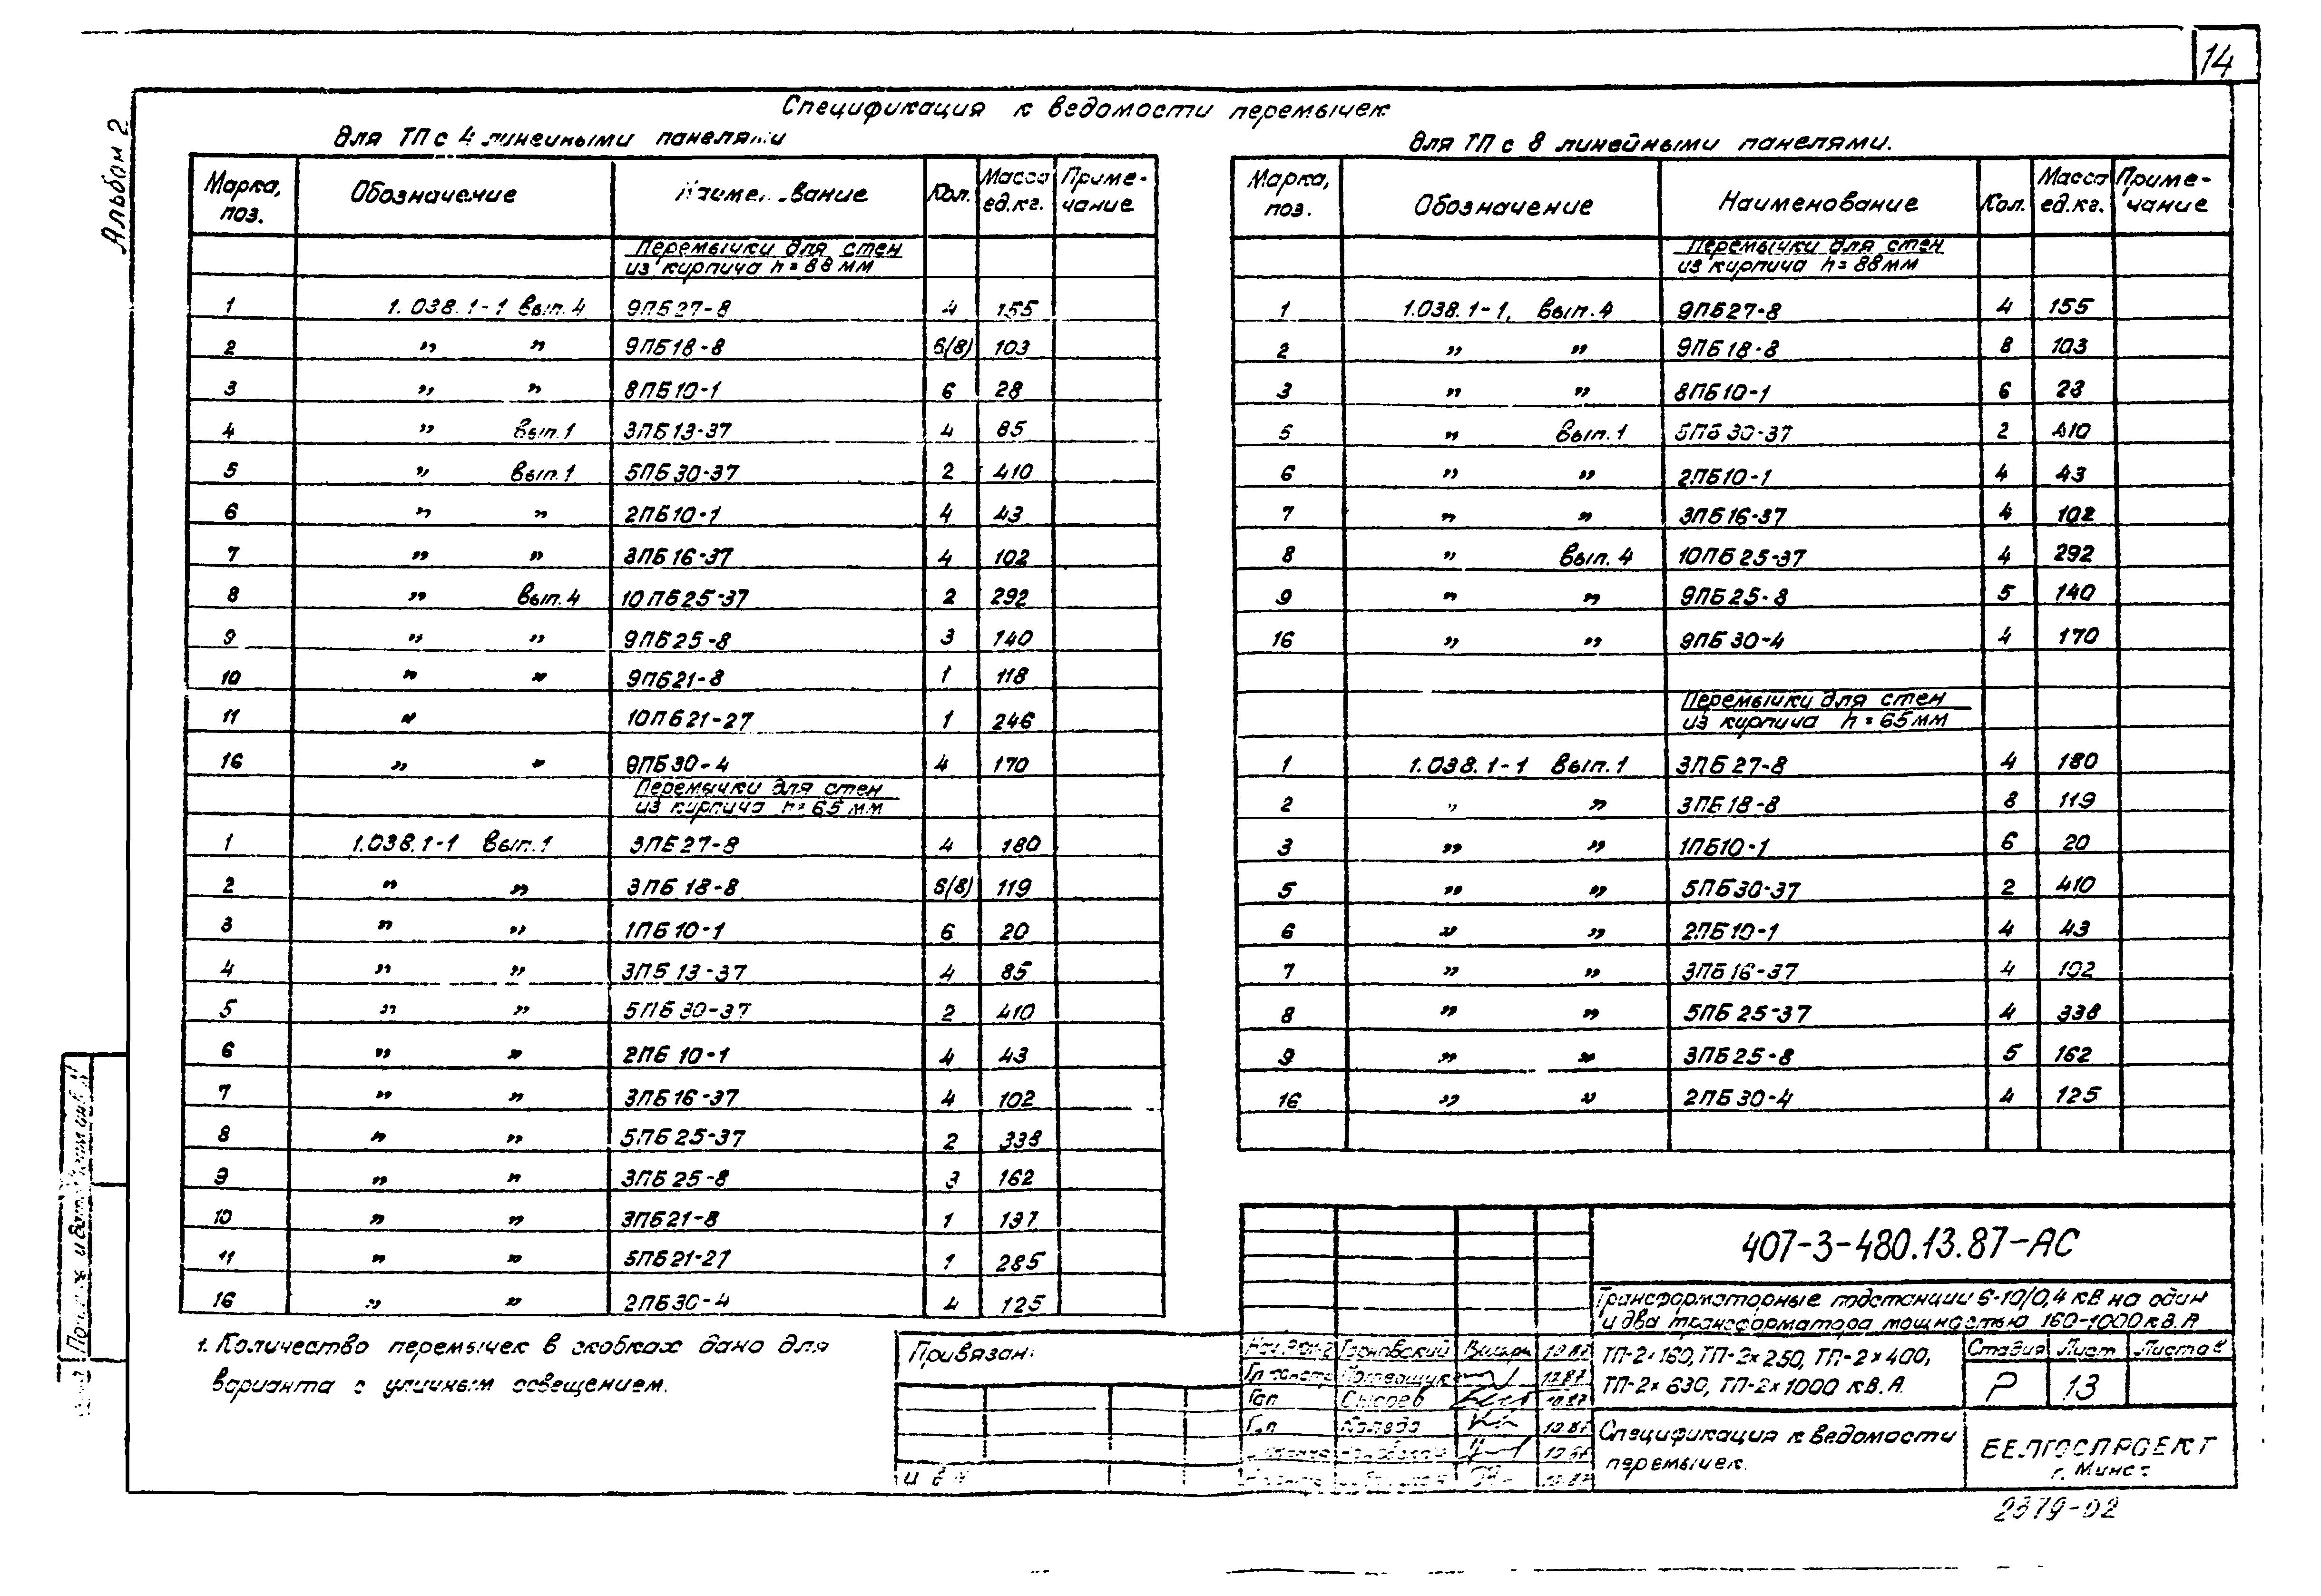 14
Альбом 2
Спецификация к ведомости перемычек
для ТП с 4 линейными панелями
Марка, поз. Обозначение Наименование Кол. Масса ед.кг. Примечание
Перемычки для стен
из кирпича h=88мм
1 1.038.1-1 вып.4 9ПБ27-8 4 155
2 „ „ 9ПБ18-8 6(8) 103
3 „ „ 8ПБ10-1 6 28
4 „ вып.1 3ПБ13-37 4 85
5 „ вып.1 5ПБ30-37 2 410
6 „ „ 2ПБ10-1 4 43
7 „ „ 3ПБ16-37 4 102
8 „ вып.4 10ПБ25-37 2 292
9 „ „ 9ПБ25-8 3 140
10 „ „ 9ПБ21-8 1 118
11 „ 10ПБ21-27 1 246
16 „ „ 9ПБ30-4 4 170
Перемычки для стен
из кирпича h=65мм
1 1.038.1-1 вып.1 3ПБ27-8 4 180
2 „ „ 3ПБ18-8 6(8) 119
3 „ „ 1ПБ10-1 6 20
4 „ „ 3ПБ13-37 4 85
5 „ „ 5ПБ30-37 2 410
6 „ „ 2ПБ10-1 4 43
7 „ „ 3ПБ16-37 4 102
8 „ „ 5ПБ25-37 2 338
9 „ „ 3ПБ25-8 3 162
10 „ „ 3ПБ21-8 1 137
11 „ „ 5ПБ21-27 1 285
16 „ „ 2ПБ30-4 4 125
1. Количество перемычек в скобках дано для
варианта с уличным освещением.
для ТП с 8 линейными панелями.
Марка, поз. Обозначение Наименование Кол. Масса ед.кг. Примечание
Перемычки для стен
из кирпича h=88мм
1 1.038.1-1, вып.4 9ПБ27-8 4 155
2 „ „ 9ПБ18-8 8 103
3 „ „ 8ПБ10-1 6 28
5 „ вып.1 5ПБ30-37 2 410
6 „ „ 2ПБ10-1 4 43
7 „ „ 3ПБ16-37 4 102
8 „ вып.4 10ПБ25-37 4 292
9 „ „ 9ПБ25-8 5 140
16 „ „ 9ПБ30-4 4 170
Перемычки для стен
из кирпича h=65мм
1 1.038.1-1 вып.1 3ПБ27-8 4 180
2 „ „ 3ПБ18-8 8 119
3 „ „ 1ПБ10-1 6 20
5 „ „ 5ПБ30-37 2 410
6 „ „ 2ПБ10-1 4 43
7 „ „ 3ПБ16-37 4 102
8 „ „ 5ПБ25-37 4 338
9 „ „ 3ПБ25-8 5 162
16 „ „ 2ПБ30-4 4 125
Привязан:
407-3-480.13.87-АС
Трансформаторные подстанции 6-10/0,4 кВ на один
и два трансформатора мощностью 160-1000 кВ.А
ТП-2×160, ТП-2×250, ТП-2×400,
ТП-2×630, ТП-2×1000 кВ.А.
Стадия Лист Листов
Р 13
Спецификация к ведомости
перемычек.
БЕЛГОСПРОЕКТ
г. Минск
Тарновский 10.87
12.87
Гап Сысоев 10.87
Гип Коледа 10.87
2379-02